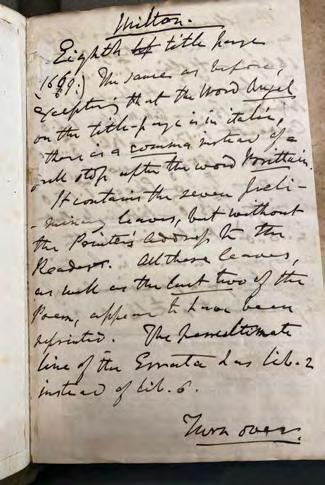 Milton.
Eighth title page
1669.) The same as before,
excepting that the word Angel
on the title-page is in italic,
& there is a comma instead of a
full stop after the word Brittain.
It contains the seven preli-
-minary leaves, but without
the Printer's Address to the
Reader. All these leaves,
as well as the last two of the
Poem, appear to have been
reprinted. The penultimate
line of the Errata has lib. 2
instead of lib. 6.
Turn over.